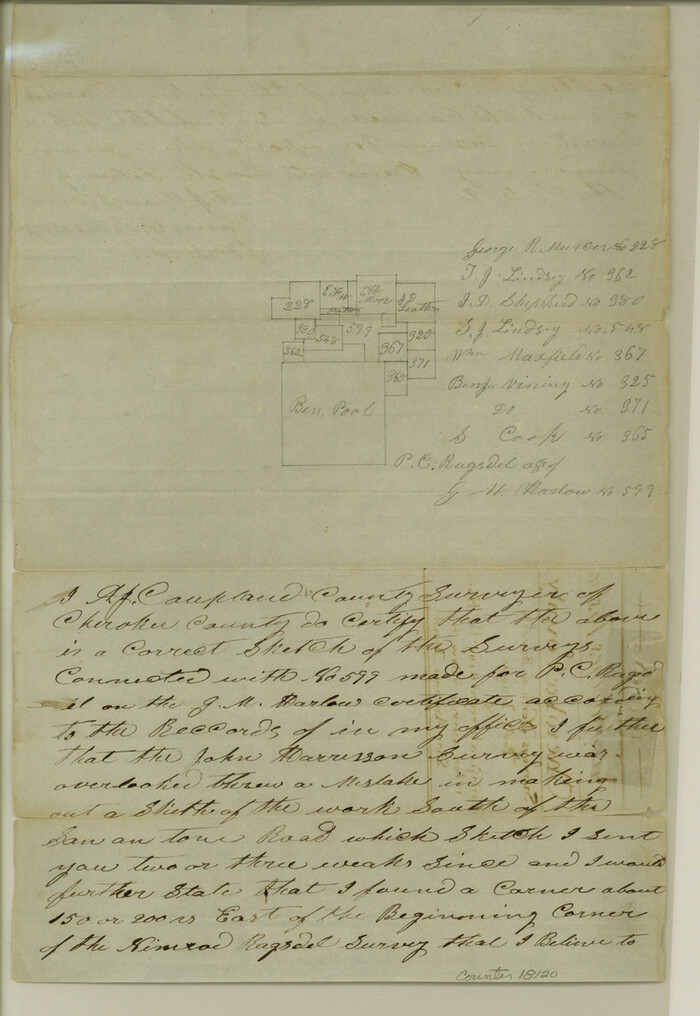 George R Mercer No 228
T. J. Lindsey No 362
J. D. Shepherd No 380
S. J. Lindsey No. 548
Wm Maxfield No 367
Benj Vining No 325
Do No 371
S Cook No 365
P. C. Ragsdel asg of
J M. Harlow No 599
228
J D
Leather
380
548
599
325
362
367
371
365
Ben. Pool
I A.J. Coupland County Surveyer of
Cherokee County do Certify that the above
is a Correct Sketch of the Surveys
Connected with No 599 made for P. C. Ragsd
el on the J. M. Harlow certificate according
to the Reccords of in my office I further
that the John Harrisson Survey was
overlooked threw a Mistake in making
out a Sketh of the work South of the
San an tone Road which Sketch I sent
you two or three weaks Since and I would
further State that I found a Corner about
150 or 200 vs East of the Beginning Corner
of the Nimrod Ragsdel Survey that I Believe to
Counter 18120